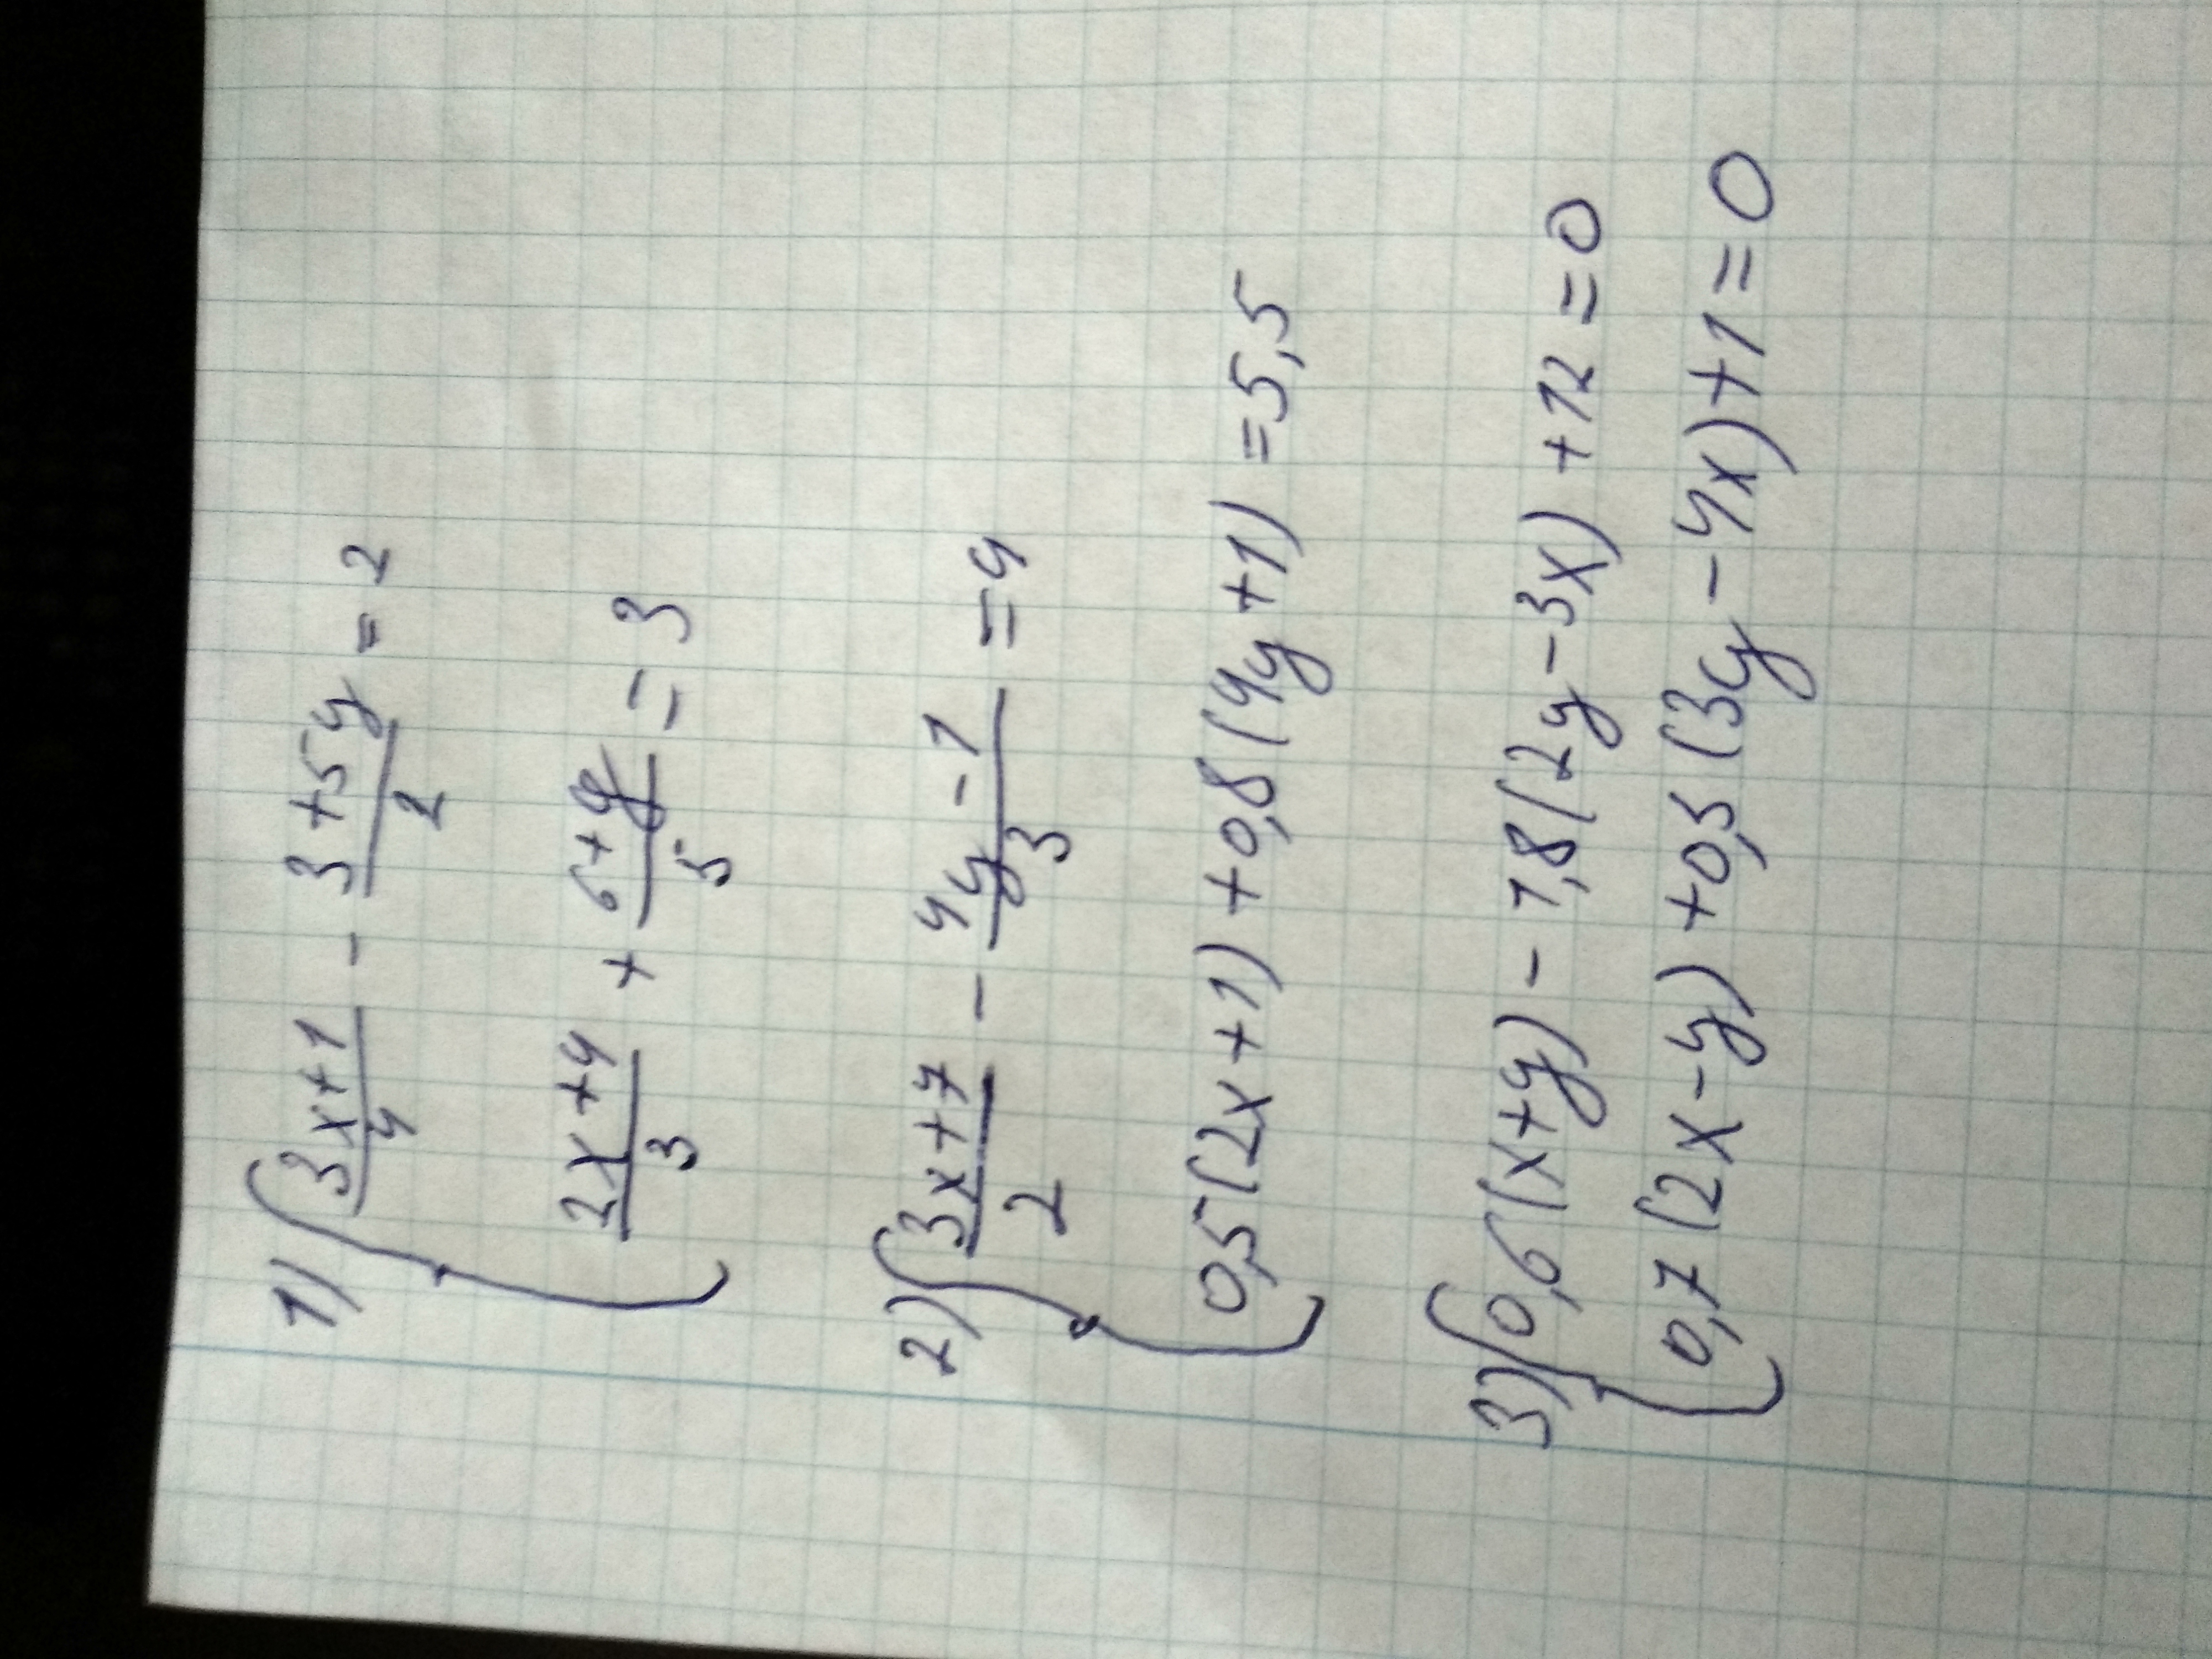 1) { (3x+1)/4 - (3+5y)/2 = 2
(2x+4)/3 + (6+y)/5 = 3
2) { (3x+7)/2 - (4y-1)/3 = 4
0,5(2x+1)+0,8(4y+1)=5,5
3) { 0,6(x+y)-1,8(2y-3x)+12=0
0,7(2x-y)+0,5(3y-4x)+1=0